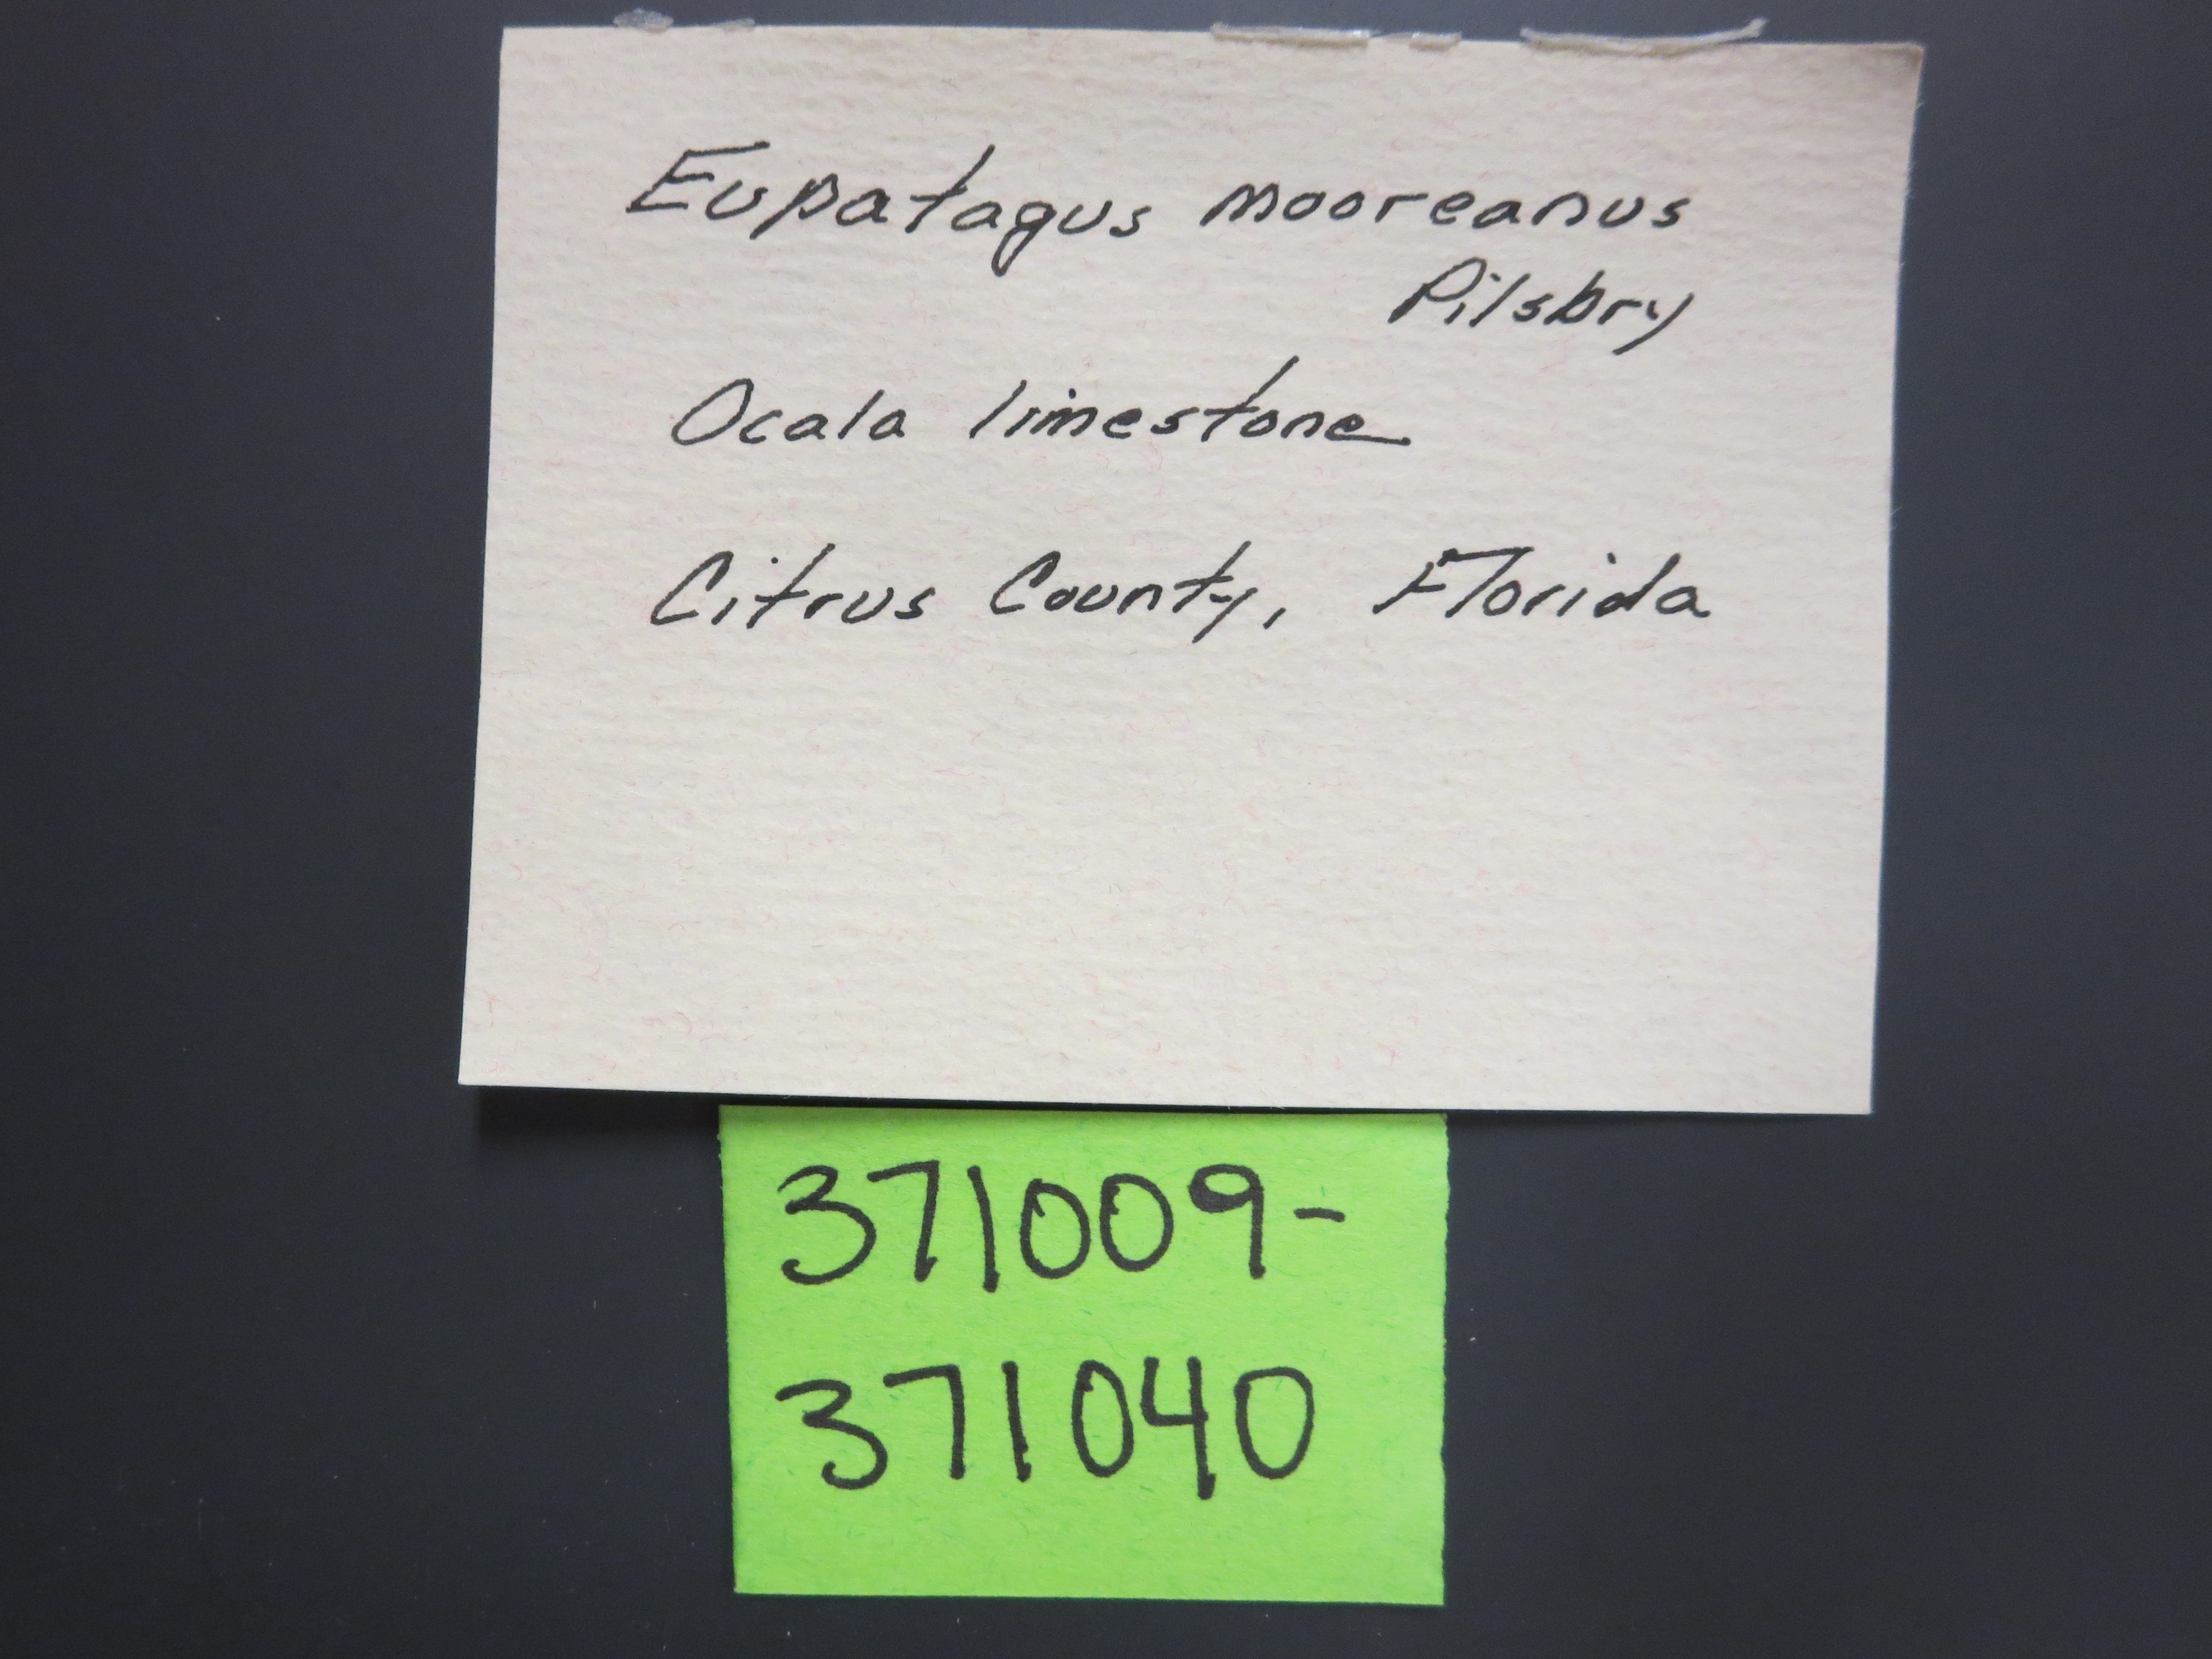 Eupatagus mooreanus
Pilsbry
Ocala limestone
Citrus County, Florida
371009-
371040